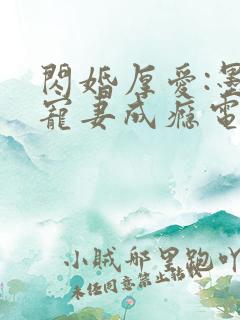 閃婚厚愛:墨
寵妻成癮電
小賊那里跑吖
未任同意禁止轉載